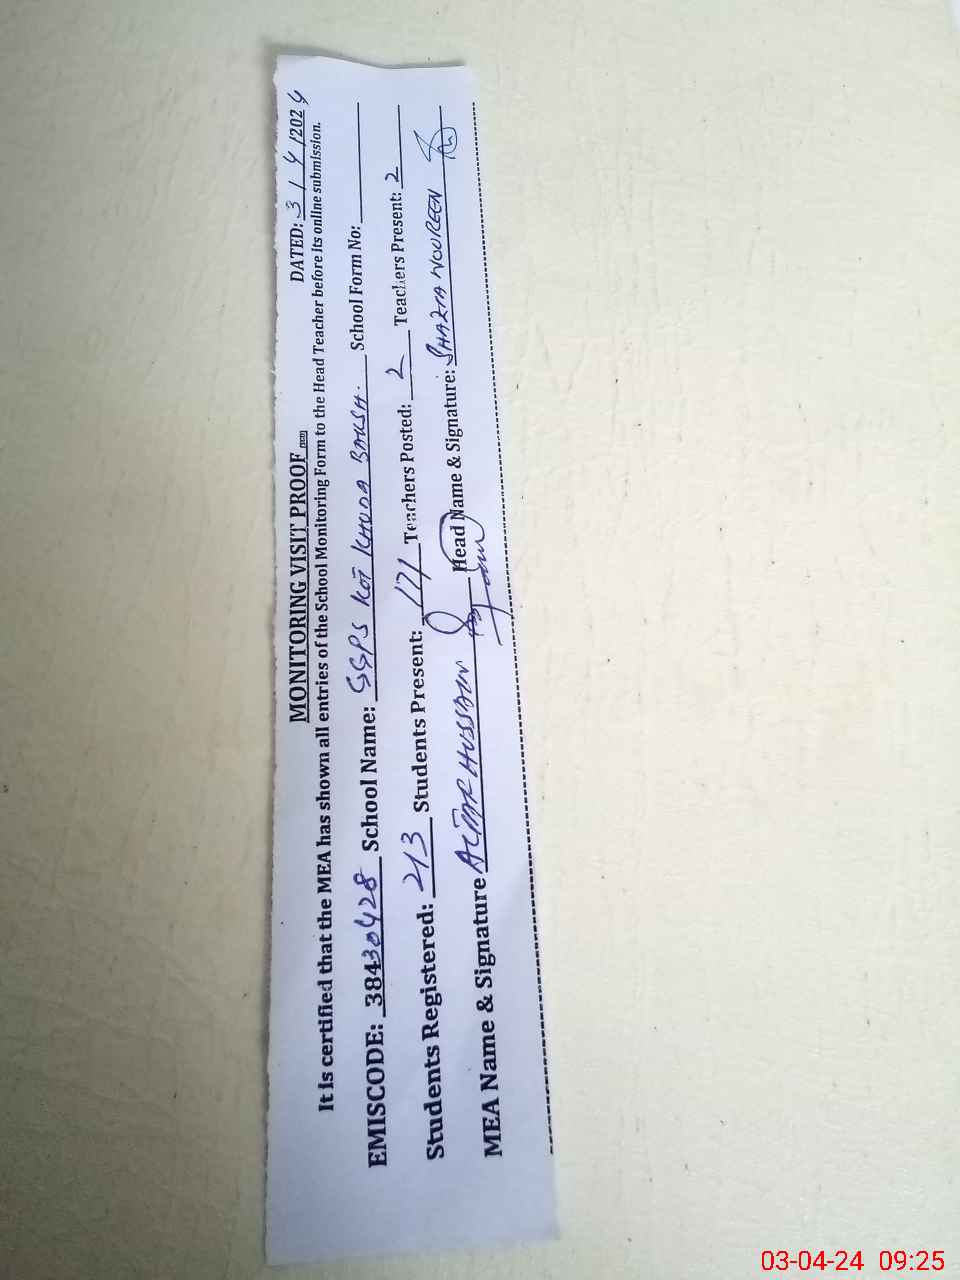 MONITORING VISIT PROOF
DATED: 3/4/2024
It is certified that the MEA has shown all entries of the School Monitoring Form to the Head Teacher before its online submission.
EMISCODE: 38430428 School Name: GGPS KOT KHUDA BAKSH. School Form No:
Students Registered: 213 Students Present: 171 Teachers Posted: 2 Teachers Present: 2
MEA Name & Signature HUSSAIN Head Name & Signature: SHAZIA NOUREEN
03-04-24 09:25